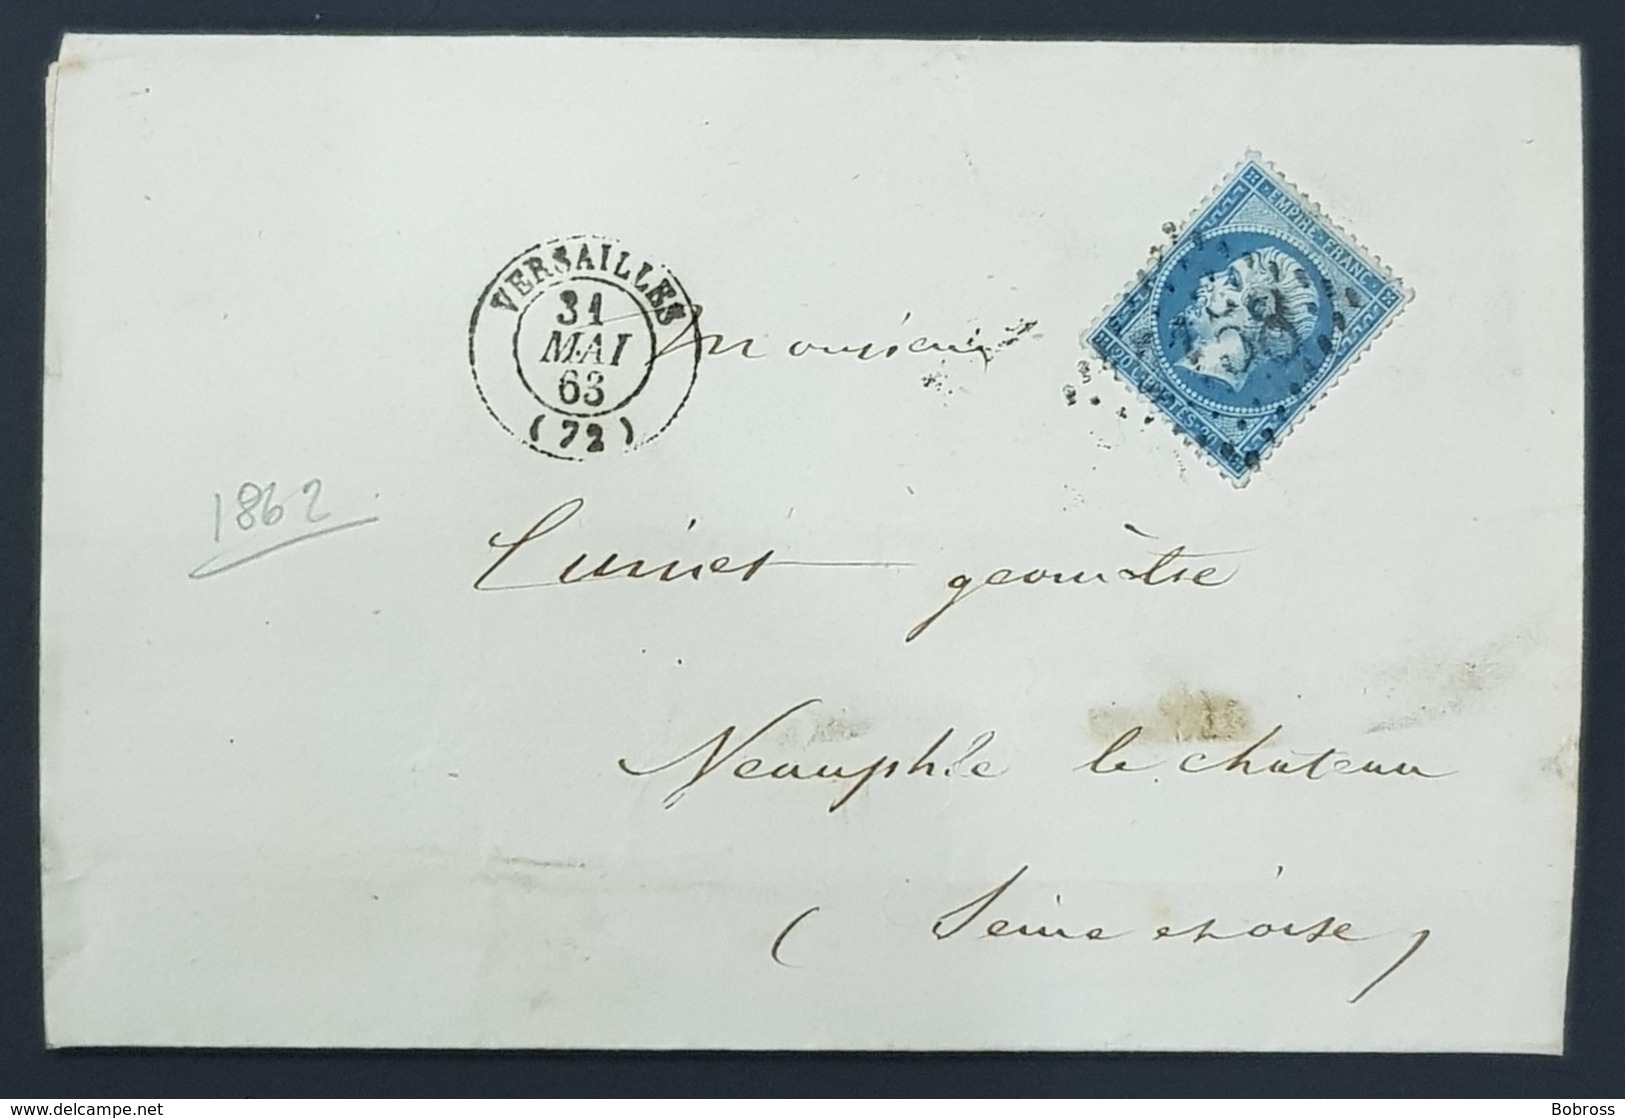 VERSAILLES
31
MAI
63
(72)
EMPIRE FRANC
20 CENTES 20
Monsieur
1862
géomètre
Neauphle le chateau
( Seine et oise )
© www.delcampe.net
Bobross